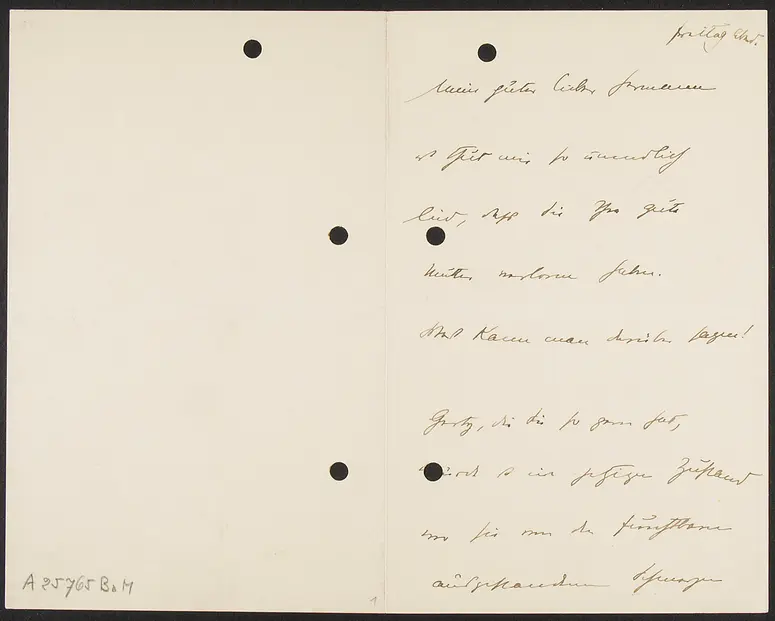 Freitag Abd.
Mein guter lieber Hermann
es thut mir so unendlich
leid, dass Sie Ihre gute
Mutter verloren haben.
Was kann man darüber sagen!
Gerty, die Sie so gern hat,
würde in jetzigen Zustand
wo sie von den furchtbaren
ausgestandenen Schmerzen
A 25765 BaM
1